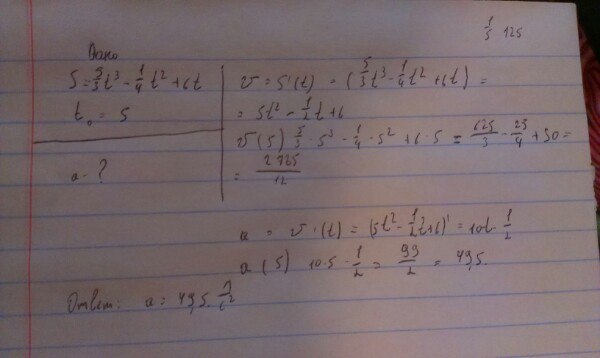 1/5 125
Дано
S = 5/3 t³ - 1/4 t² + 6t
t₀ = 5
a - ?
v = S'(t) = (5/3 t³ - 1/4 t² + 6t)' =
= 5t² - 1/2 t + 6
v(5) 5/3 · 5³ - 1/4 · 5² + 6 · 5 = 625/3 - 25/4 + 30 =
= 2725/12
a = v'(t) = (5t² - 1/2 t + 6)' = 10t - 1/2
a(5) 10 · 5 - 1/2 = 99/2 = 49,5.
Ответ: a = 49,5